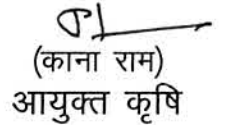 (काना राम)
आयुक्त कृषि